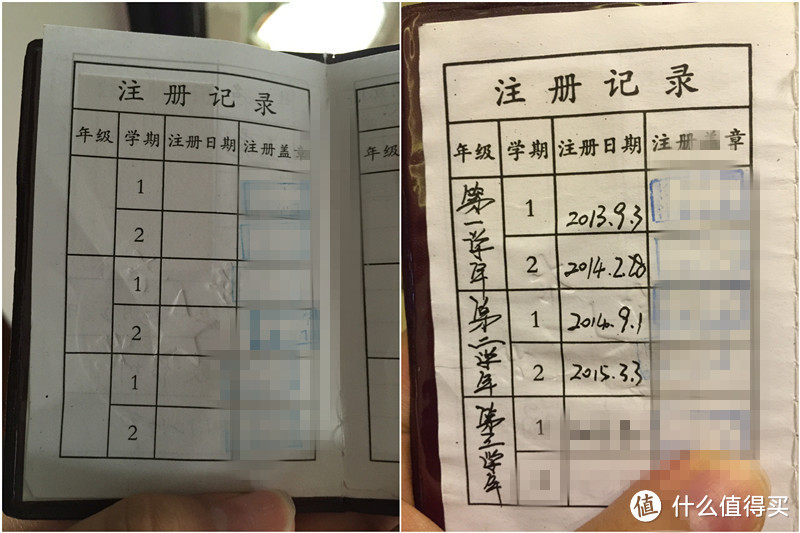 注册记录
年级 学期 注册日期 注册盖
1
2
1
2
1
2
年级
注册记录
年级 学期 注册日期 注册 章
第一学年 1 2013.9.3
2 2014.2.28
第二学年 1 2014.9.1
2 2015.3.3
第三学年 1
值 什么值得买